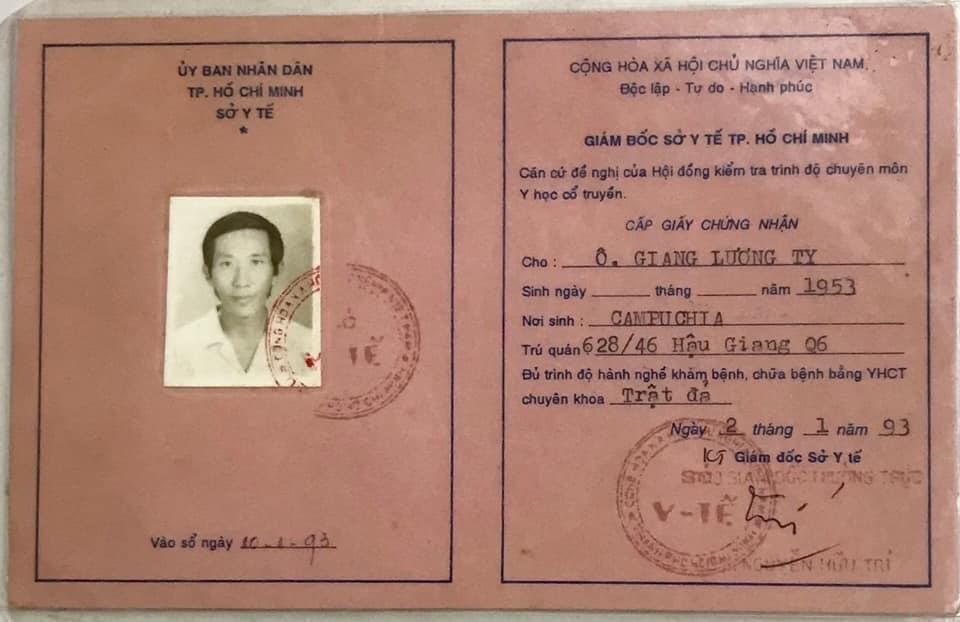 ỦY BAN NHÂN DÂN
TP. HỒ CHÍ MINH
SỞ Y TẾ
*
Y TẾ
Vào sổ ngày 10-2-93
CỘNG HÒA XÃ HỘI CHỦ NGHĨA VIỆT NAM
Độc lập - Tự do - Hạnh phúc
GIÁM ĐỐC SỞ Y TẾ TP. HỒ CHÍ MINH
Căn cứ đề nghị của Hội đồng kiểm tra trình độ chuyên môn
Y học cổ truyền.
CẤP GIẤY CHỨNG NHẬN
Cho : Ô. GIANG LƯƠNG TY
Sinh ngày tháng năm 1953
Nơi sinh : CAMPUCHIA
Trú quán 628/46 Hậu Giang Q6
Đủ trình độ hành nghề khám bệnh, chữa bệnh bằng YHCT
chuyên khoa Trật đả
Ngày 2 tháng 1 năm 93
KT Giám đốc Sở Y tế
PHÓ GIÁM ĐỐC THƯỜNG TRỰC
Y-TẾ
NGUYỄN HỮU TRÍ